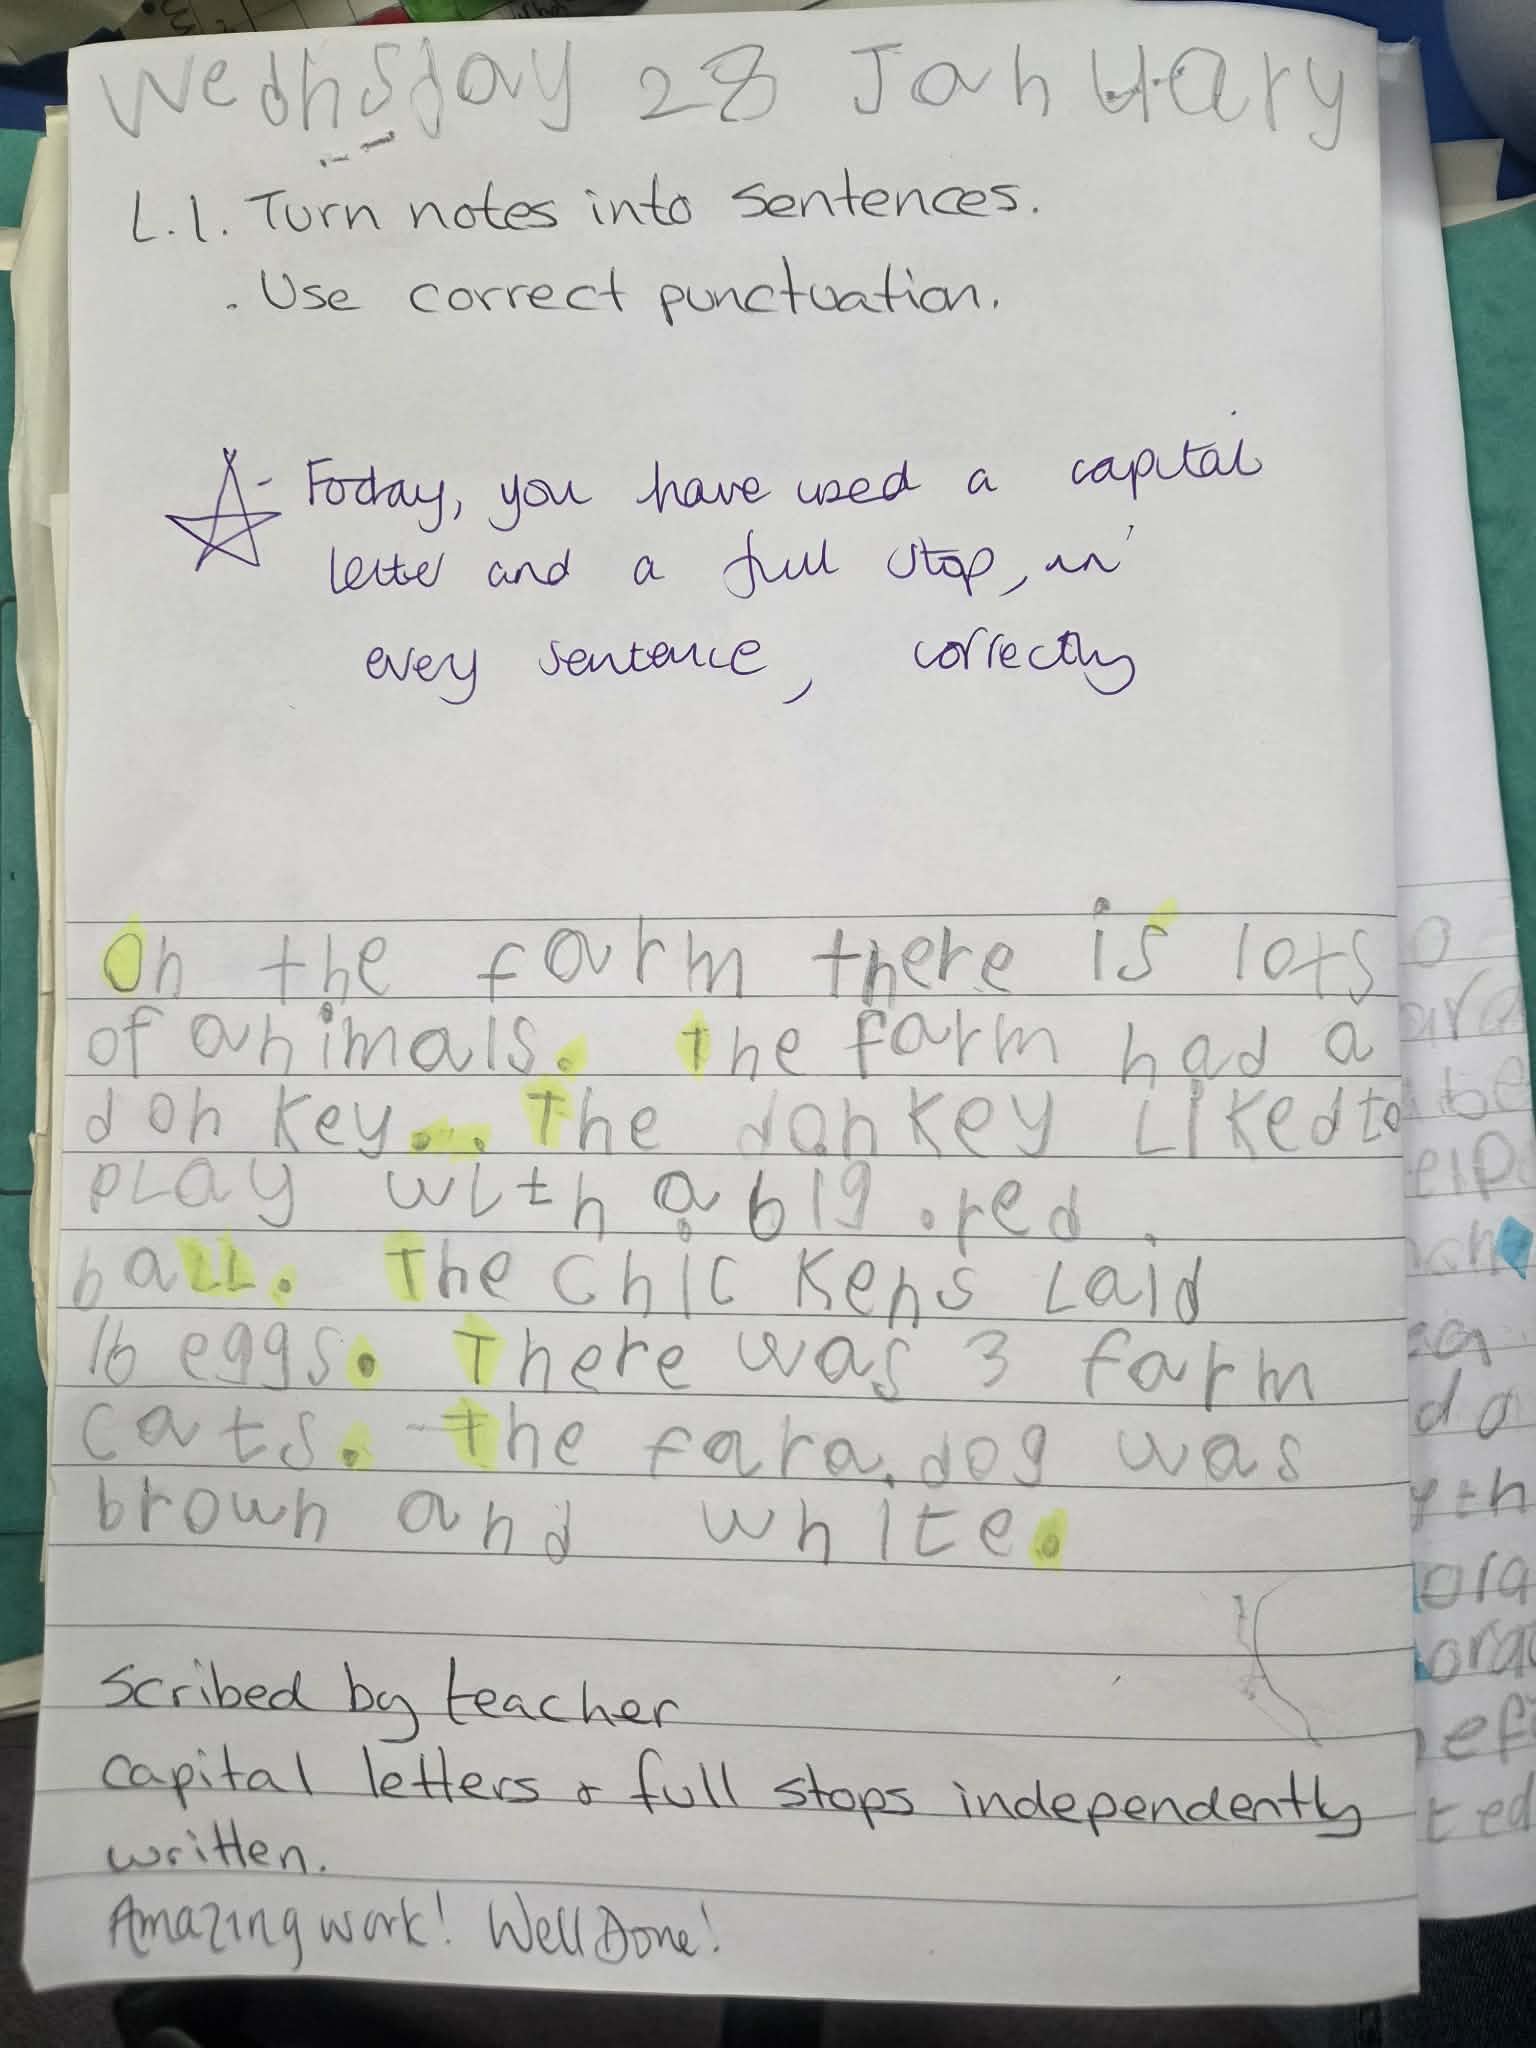 Wednsday 28 January
L.I. Turn notes into sentences.
. Use correct punctuation.
- Today, you have used a capital
letter and a full stop, in
every sentence, correctly
On the farm there is lots
of animals. the farm had a
donkey.. The donkey Liked to
pLay with a big .red.
baLL. The chicKens Laid
16 eggs. There was 3 farm
cats. The fara.dog was
brown and white.
Scribed by teacher
Capital letters & full stops independently
written.
Amazing work! Well Done!